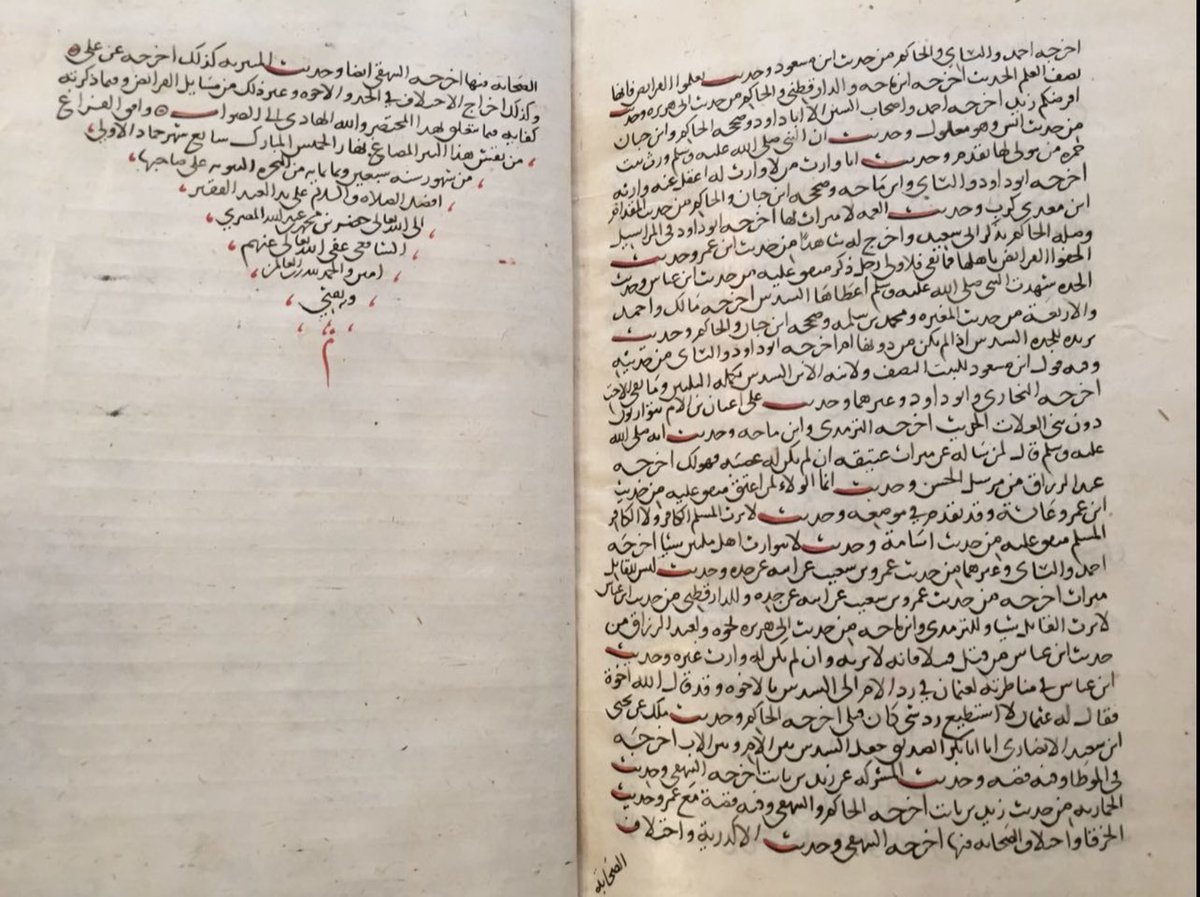 اخرجه احمد والنساي والحاكم من حديث ابن مسعود وحديث تعلموا الفرايض فانها
نصف العلم الحديث اخرجه ابن ماجه والدارقطني والحاكم من حديث ابي هريره وحديث
افرضكم زيد اخرجه احمد واصحاب السنن الا ابا داود وصححه الحاكم وابن حبان
من حديث انس وهو معلول وحديث ان النبي صلى الله عليه وسلم ورث بنت
حمزه من مولى لها تقدم وحديث انا وارث من لا وارث له اعقل عنه وارثه
اخرجه ابو داود والنساي وابن ماجه وصححه ابن حبان والحاكم من حديث المقدام
ابن معدي كرب وحديث العمه لا ميراث لها اخرجه ابو داود في المراسيل
وصله الحاكم بذكر ابي سعيد واخرج له شاهدا من حديث ابن عمر وحديث
الحقوا الفرايض باهلها فما بقي فلاولى رجل ذكر متفق عليه من حديث ابن عباس وحديث
الجده شهدت النبي صلى الله عليه وسلم اعطاها السدس اخرجه مالك واحمد
والاربعة من حديث المغيره ومحمد بن سلمه وصححه ابن حبان والحاكم وحديث
بريده للجده السدس اذا لم يكن من دونها ام اخرجه ابو داود والنساي من حديثه
وفيه قول ابن مسعود للبنت النصف ولابنه الابن السدس تكمله الثلثين وما بقي للاخت
اخرجه البخاري وابو داود وغيرهما وحديث علي اعيان بني الام يتوارثون
دون بني العلات الحديث اخرجه الترمذي وابن ماجه وحديث انه صلى الله
عليه وسلم قال لمن ساله عن ميراث عتيقه ان لم يكن له عصبه فهو لك اخرجه
عبد الرزاق من مرسل الحسن وحديث انما الولاء لمن اعتق متفق عليه من حديث
ابن عمر وعائشة وقد تقدم في موضعه وحديث لا يرث المسلم الكافر ولا الكافر
المسلم متفق عليه من حديث اسامة وحديث لا يتوارث اهل ملتين شيا اخرجه
احمد والنساي وغيرهما من حديث عمرو بن شعيب عن ابيه عن جده وحديث ليس للقاتل
ميراث اخرجه من حديث عمرو بن شعيب عن ابيه عن جده وللدارقطني من حديث ابن عباس
لا يرث القاتل شيا وللترمذي وابن ماجه من حديث ابي هريره نحوه ولعبد الرزاق من
حديث ابن عباس من قتل قتيلا فانه لا يرثه وان لم يكن له وارث غيره وحديث
ابن عباس في مناظرته لعثمان في رد الام الى السدس بالاخوه وقد قال الله اخوة
فقال له عثمان لا استطيع رد شي كان قبلي اخرجه الحاكم وحديث ملك عن يحيى
ابن سعيد الانصاري ان ابا بكر الصديق جعل السدس بين الام وبين الاب اخرجه
في الموطا وفيه قصه وحديث المشركه عن زيد بن ثابت اخرجه البيهقي وحديث
الحماريه من حديث زيد بن ثابت اخرجه الحاكم والبيهقي وفيه قصة مع عمر وحديث
الخرقا واختلاف الصحابه فيها اخرجه البيهقي وحديث الاكدرية واختلاف
الصحابه
الصحابه فيها اخرجه البيهقي ايضا وحديث المنبريه كذلك اخرجه عن علي
وكذلك اخراج الاختلاف في الجد والاخوه وغير ذلك من مسايل الفرايض وفيما ذكرته
كفايه فيما يتعلق بهذا المختصر والله الهادي الى الصواب وافق الفراغ
من نقش هذا السر المصاغ نهار الخميس المبارك سابع شهر جماد الاولى
من شهور سنه سبعين وثمانمايه من الهجره النبويه على صاحبها
افضل الصلاه والسلام على يد العبد الفقير
الى الله تعالى خضر بن محمد بن عبد الله المصري
الشافعي عفى الله تعالى عنهم
امين والحمد لله رب العالمين
وبه ثقتي
م